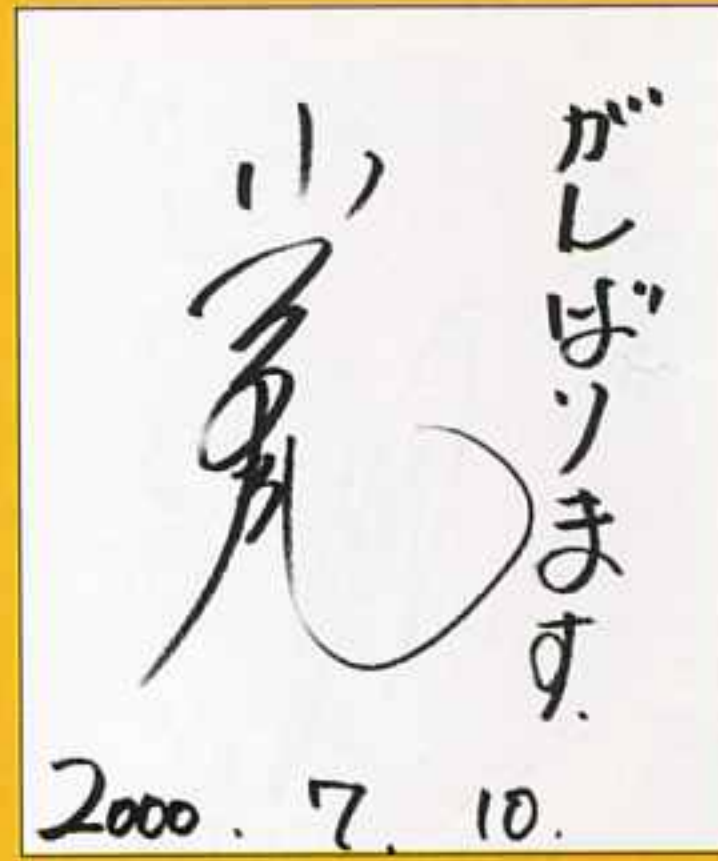 がんばります.
小
2000. 7. 10.